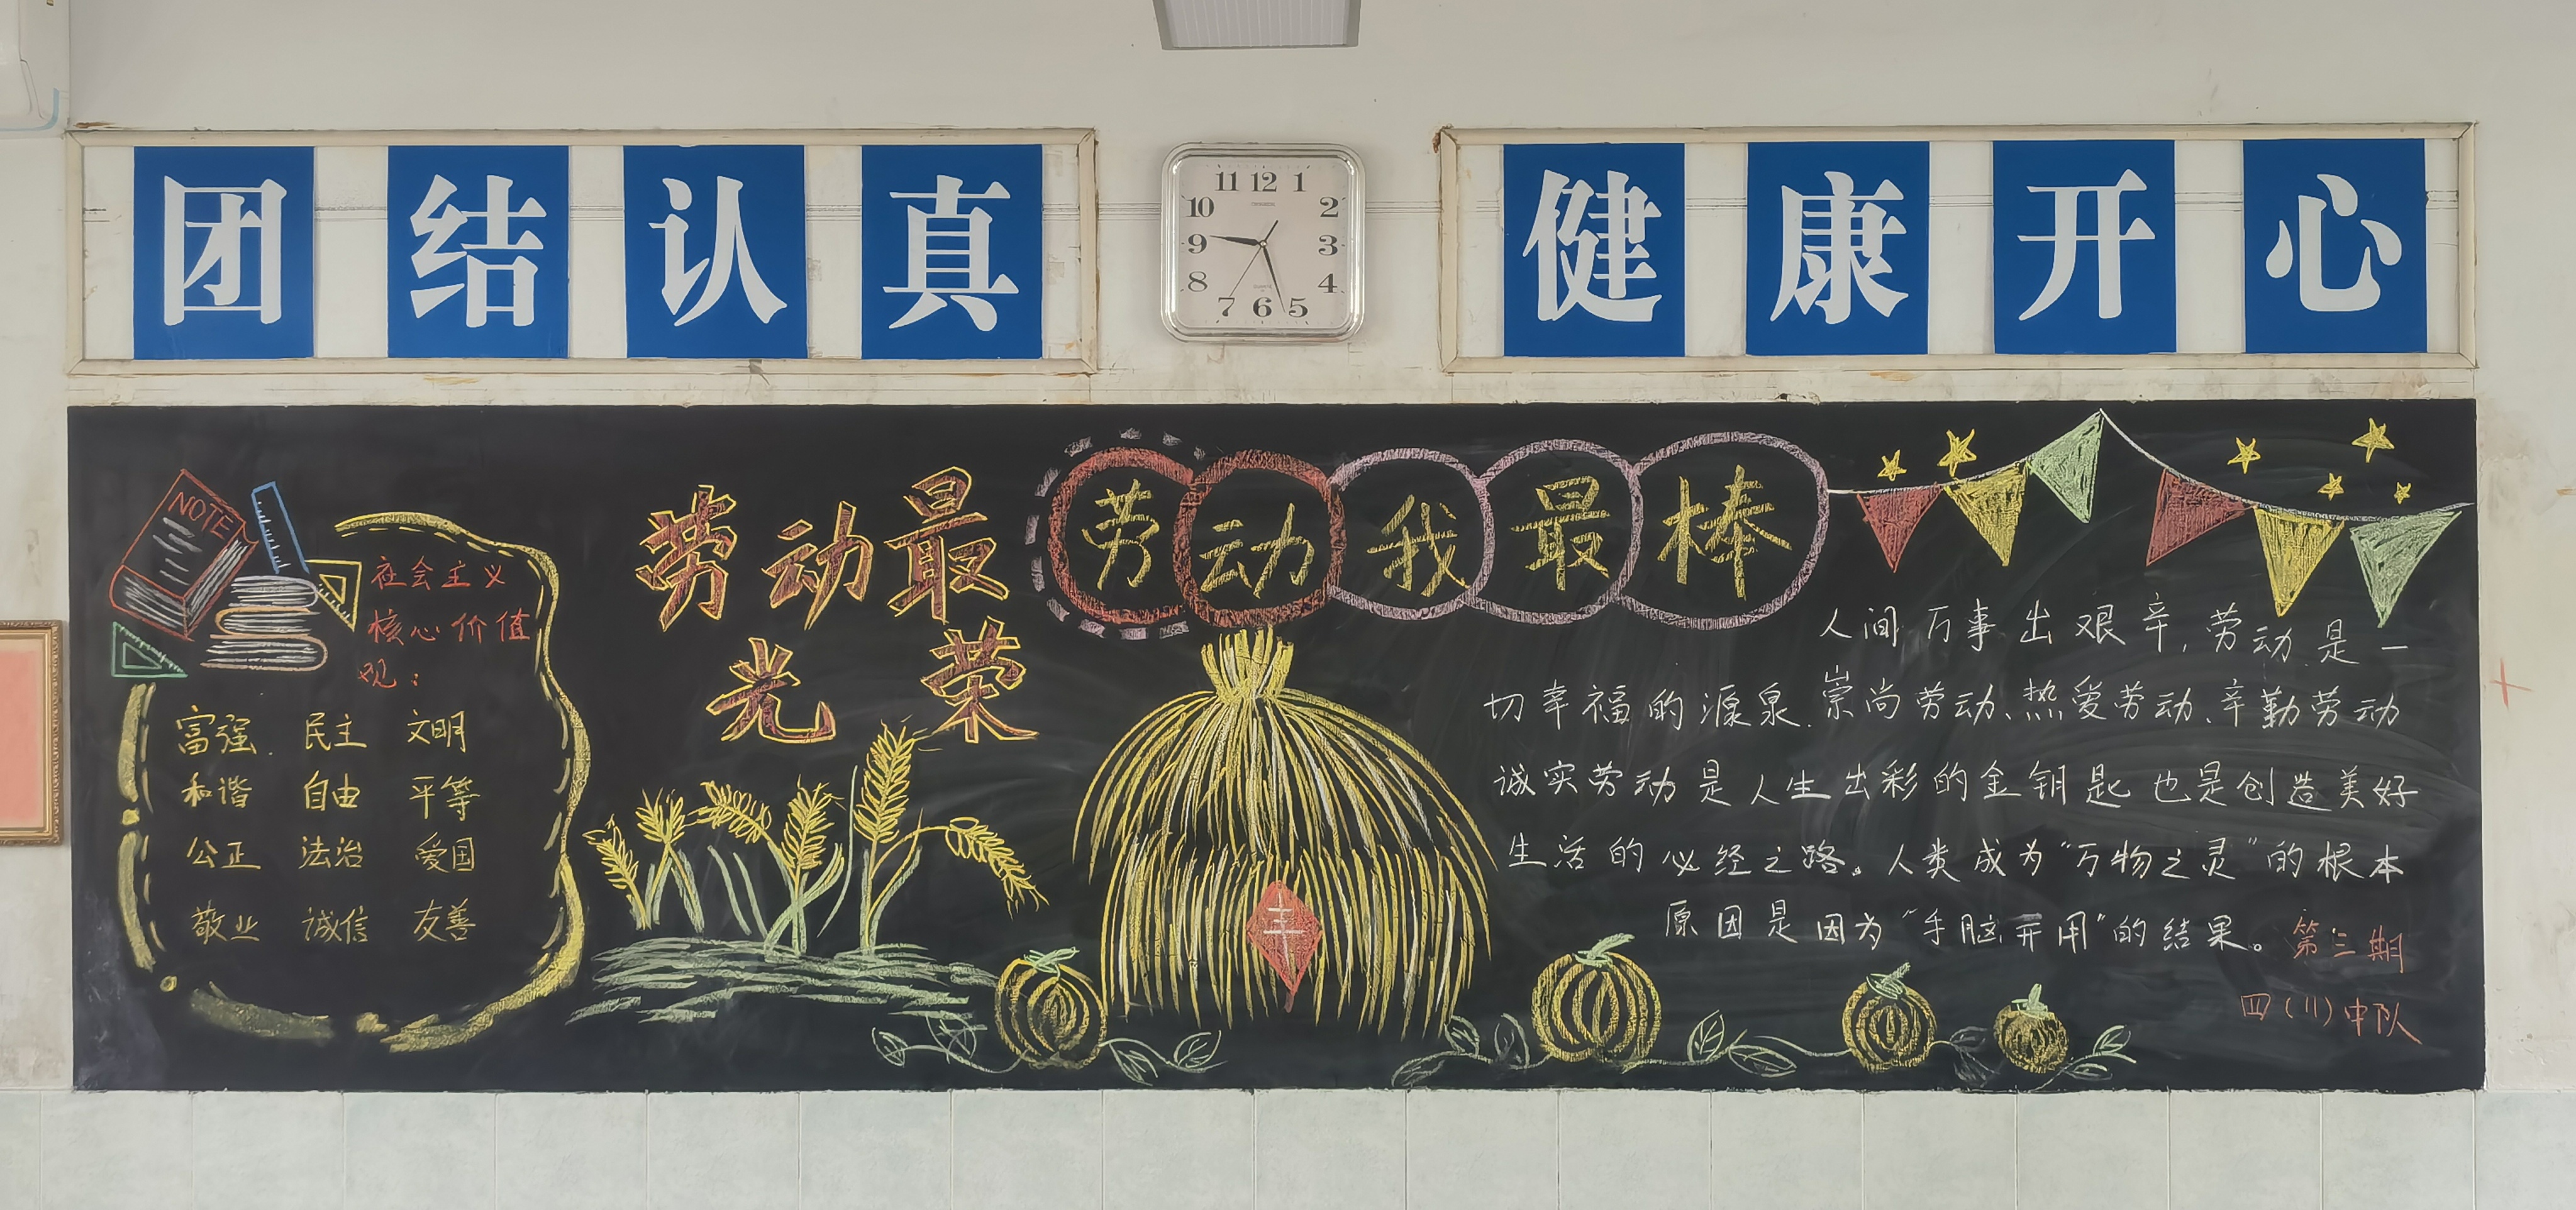 团结认真
健康开心
11 12 1
10 2
9 3
8 4
7 6 5
NOTE
社会主义
核心价值
观：
富强. 民主 文明
和谐 自由 平等
公正 法治 爱国
敬业 诚信 友善
劳动最
光荣
劳动我最棒
丰
人间万事出艰辛,劳动是一
切幸福的源泉.崇尚劳动、热爱劳动、辛勤劳动
诚实劳动是人生出彩的金钥匙也是创造美好
生活的必经之路。人类成为“万物之灵”的根本
原因是因为“手脑开用”的结果。
第三期
四(11)中队